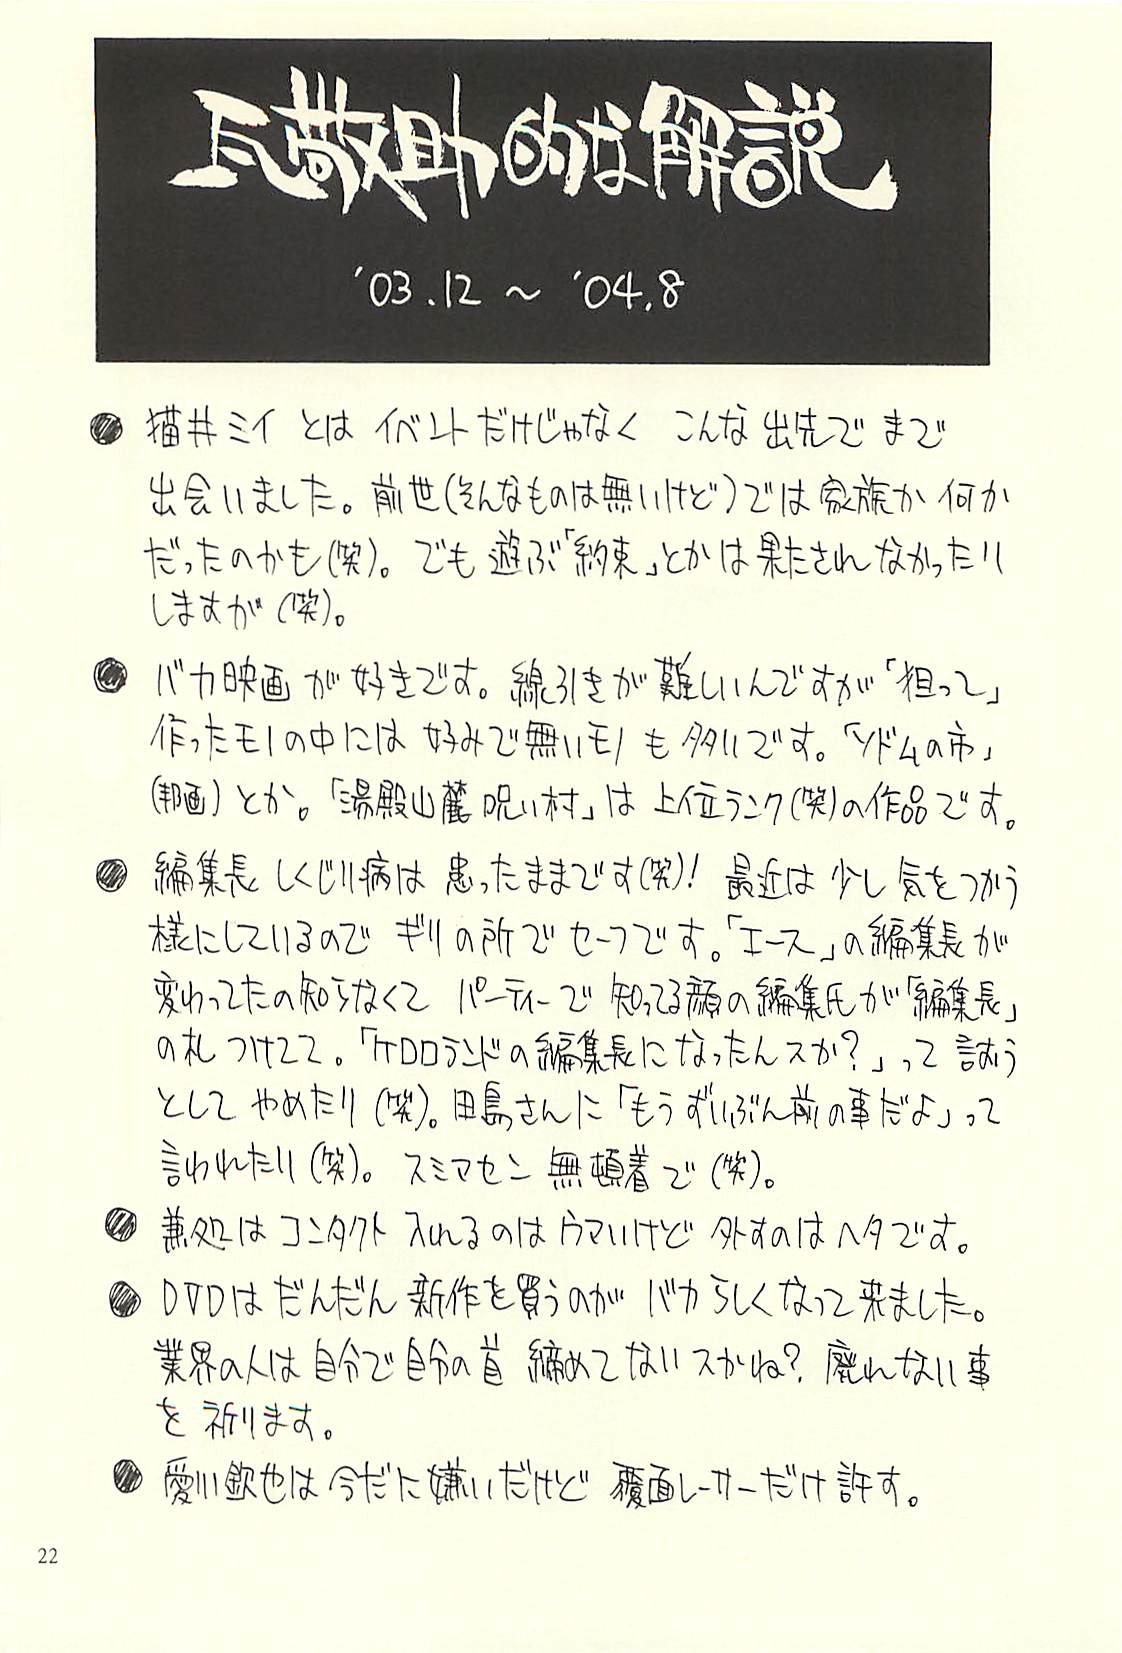 瓦敬助的な解説
'03.12 ～ '04.8
● 猫井ミイ とは イベントだけじゃなく こんな出先でまで
出会いました。前世(そんなものは無いけど)では家族か何か
だったのかも(笑)。でも遊ぶ「約束」とかは果たされなかったり
しますが(笑)。
● バカ映画が好きです。線引きが難しいんですが「狙って」
作ったモノの中には好みで無いモノも多いです。「ソドムの市」
(邦画)とか。「湯殿山麓呪い村」は上位ランク(笑)の作品です。
● 編集長しくじり病は患ったままです(笑)! 最近は少し気をつかう
様にしているのでギリの所でセーフです。「エース」の編集長が
変わってたの知らなくてパーティーで知ってる顔の編集氏が「編集長」
の札つけてて。「ケロロランドの編集長になったんスか?」って言おう
としてやめたり(笑)。田島さんに「もうずいぶん前の事だよ」って
言われたり(笑)。スミマセン無頓着で(笑)。
● 兼処はコンタクト入れるのはウマいけど外すのはヘタです。
● DVDはだんだん新作を買うのがバカらしくなって来ました。
業界の人は自分で自分の首締めてないスかね? 廃れない事
を祈ります。
● 愛川欽也は今だに嫌いだけど覆面レーサーだけ許す。
22